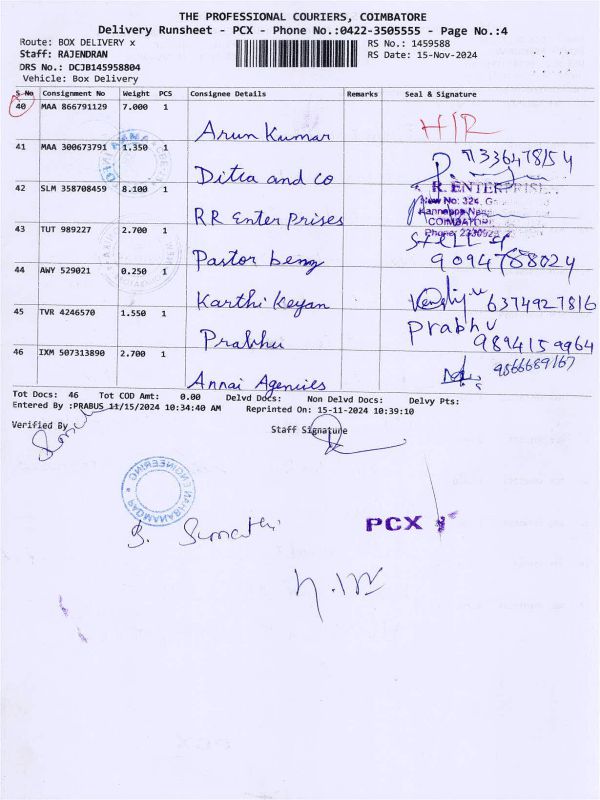 THE PROFESSIONAL COURIERS, COIMBATORE
Delivery Runsheet - PCX - Phone No.:0422-3505555 - Page No.:4
Route: BOX DELIVERY x
RS No.: 1459588
Staff: RAJENDRAN
RS Date: 15-Nov-2024
DRS No.: DCJB145958804
Vehicle: Box Delivery
S.No Consignment No Weight PCS Consignee Details Remarks Seal & Signature
40 MAA 866791129 7.000 1
Arun Kumar H/R
41 MAA 300673791 1.350 1
Ditia and co
42 SLM 358708459 8.100 1
R. ENTERPRISE
New No: 324,
RR Enterprises
COIMBATORE
43 TUT 989227 2.700 1
Pastor beny 9094788024
44 AWY 529021 0.250 1
Karthi Keyan 6374927816
45 TVR 4246570 1.550 1
Prabhu Prabhu
9894159964
46 IXM 507313890 2.700 1
9866689167
Annai Agencies
Tot Docs: 46 Tot COD Amt: 0.00 Delvd Docs: Non Delvd Docs: Delvy Pts:
Entered By :PRABUS 11/15/2024 10:34:40 AM Reprinted On: 15-11-2024 10:39:10
Verified By
Staff Signature
PADMANABHAN ENGINEERING
S. Sumathi
PCX